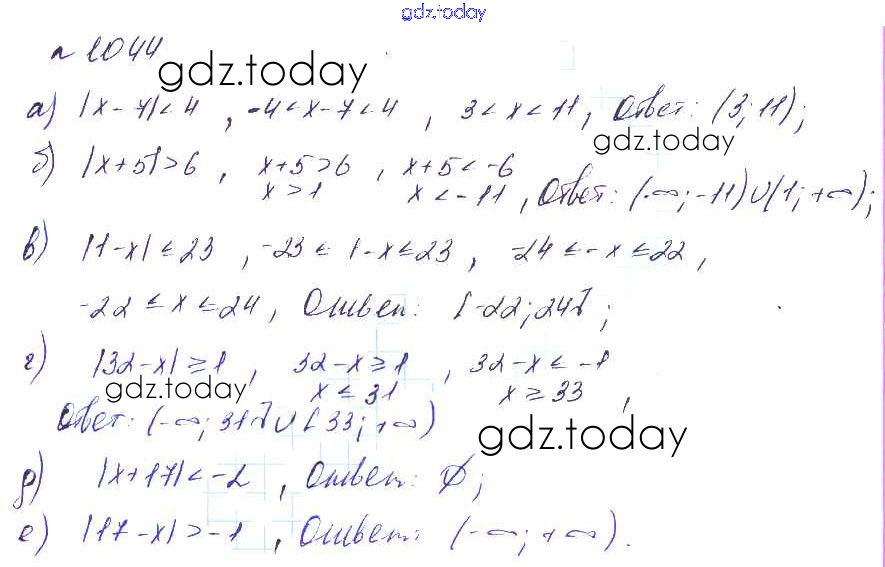 gdz.today
n 1044
gdz.today
а) |x-7|<4, -4<x-7<4, 3<x<11, Ответ: (3; 11);
gdz.today
б) |x+5|>6, x+5>6, x+5<-6
x>1 x<-11, Ответ: (-∞; -11)∪(1; +∞);
в) |1-x|≤23, -23≤1-x≤23, -24≤-x≤22,
-22≤x≤24, Ответ: [-22; 24];
г) |32-x|≥1, 32-x≥1, 32-x≤-1
gdz.today
x≤31 x≥33,
Ответ: (-∞; 31]∪[33; +∞)
gdz.today
д) |x+17|<-2, Ответ: ∅;
е) |17-x|>-1, Ответ: (-∞; +∞).